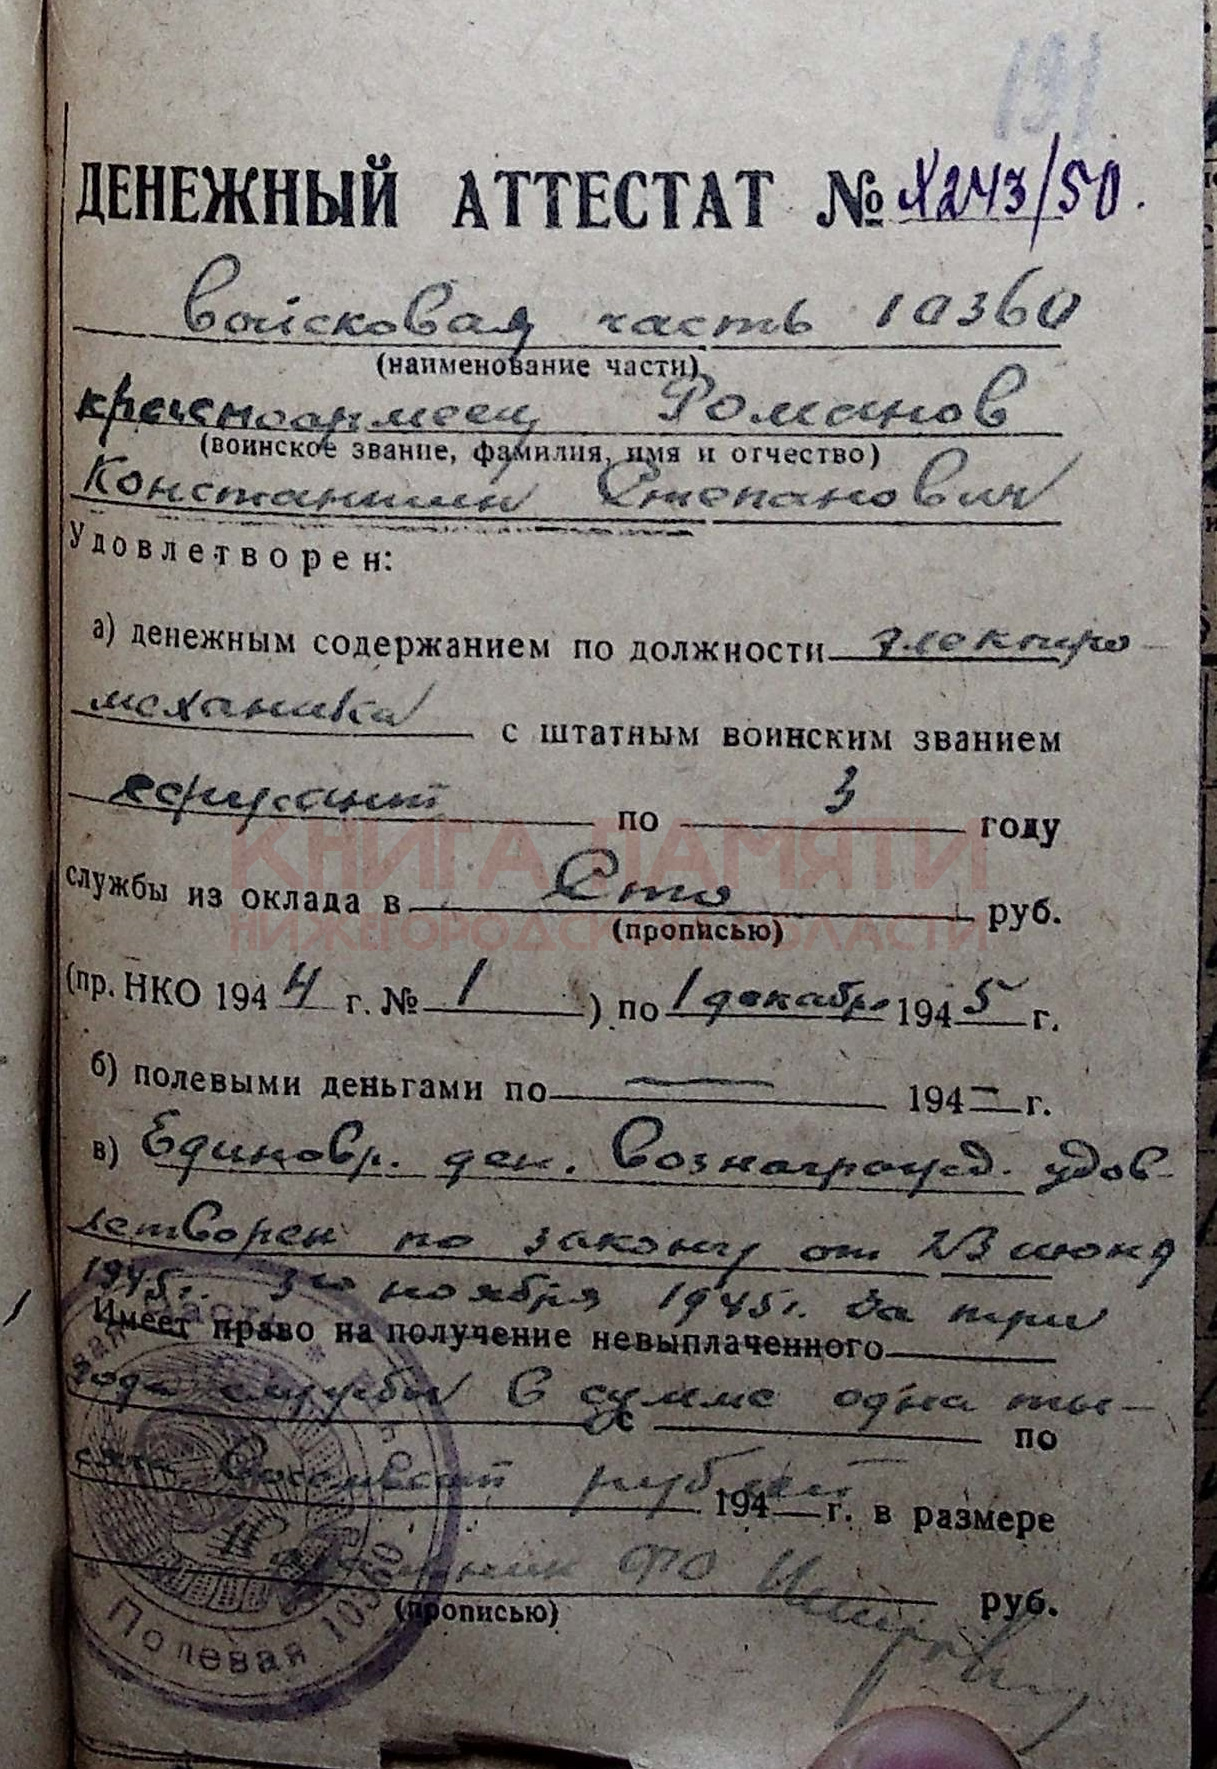 191
ДЕНЕЖНЫЙ АТТЕСТАТ № X243/50.
Войсковая часть 10360
(наименование части)
красноармеец Романов
(воинское звание, фамилия, имя и отчество)
Константин Степанович
Удовлетворен:
а) денежным содержанием по должности электро-
механика с штатным воинским званием
ефрейтор по 3 году
службы из оклада в Сто руб.
(прописью)
КНИГА ПАМЯТИ
НИЖЕГОРОДСКОЙ ОБЛАСТИ
(пр. НКО 1944 г. № 1 ) по 1 декабря 1945 г.
б) полевыми деньгами по — 194— г.
в) Единовр. ден. вознагражд. удов-
летворен по закону от 23 июня
1945 г. 3го ноября 1945 г. за три
Имеет право на получение невыплаченного
года службы в сумме одна ты-
с по
сяча рублей
194 г. в размере
Начальник ФО
руб.
(прописью)
Полевая 10360
часть